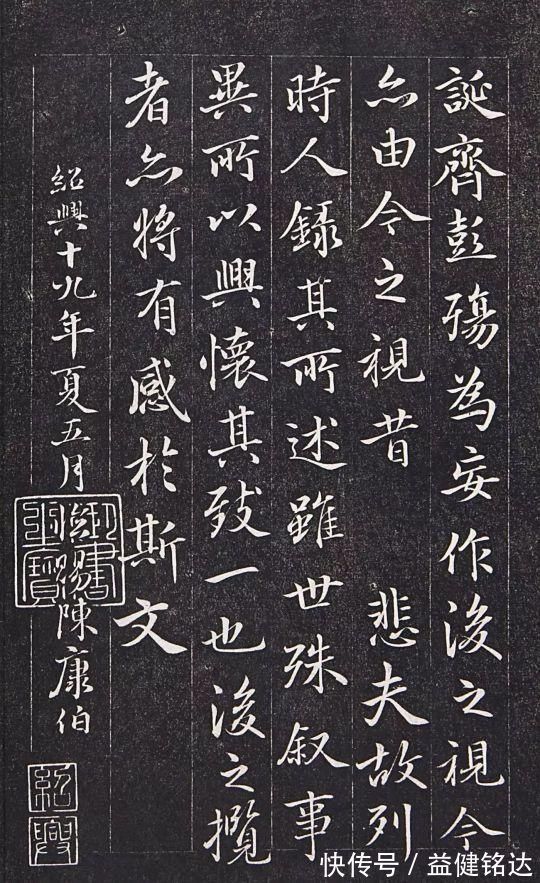 誕齊彭殤為妄作後之視今
亦由今之視昔 悲夫故列
時人錄其所述雖世殊叙事
異所以興懷其致一也後之攬
者亦將有感於斯文
紹興十九年夏五月 賜陳康伯
紹興
快传号 / 益健铭达